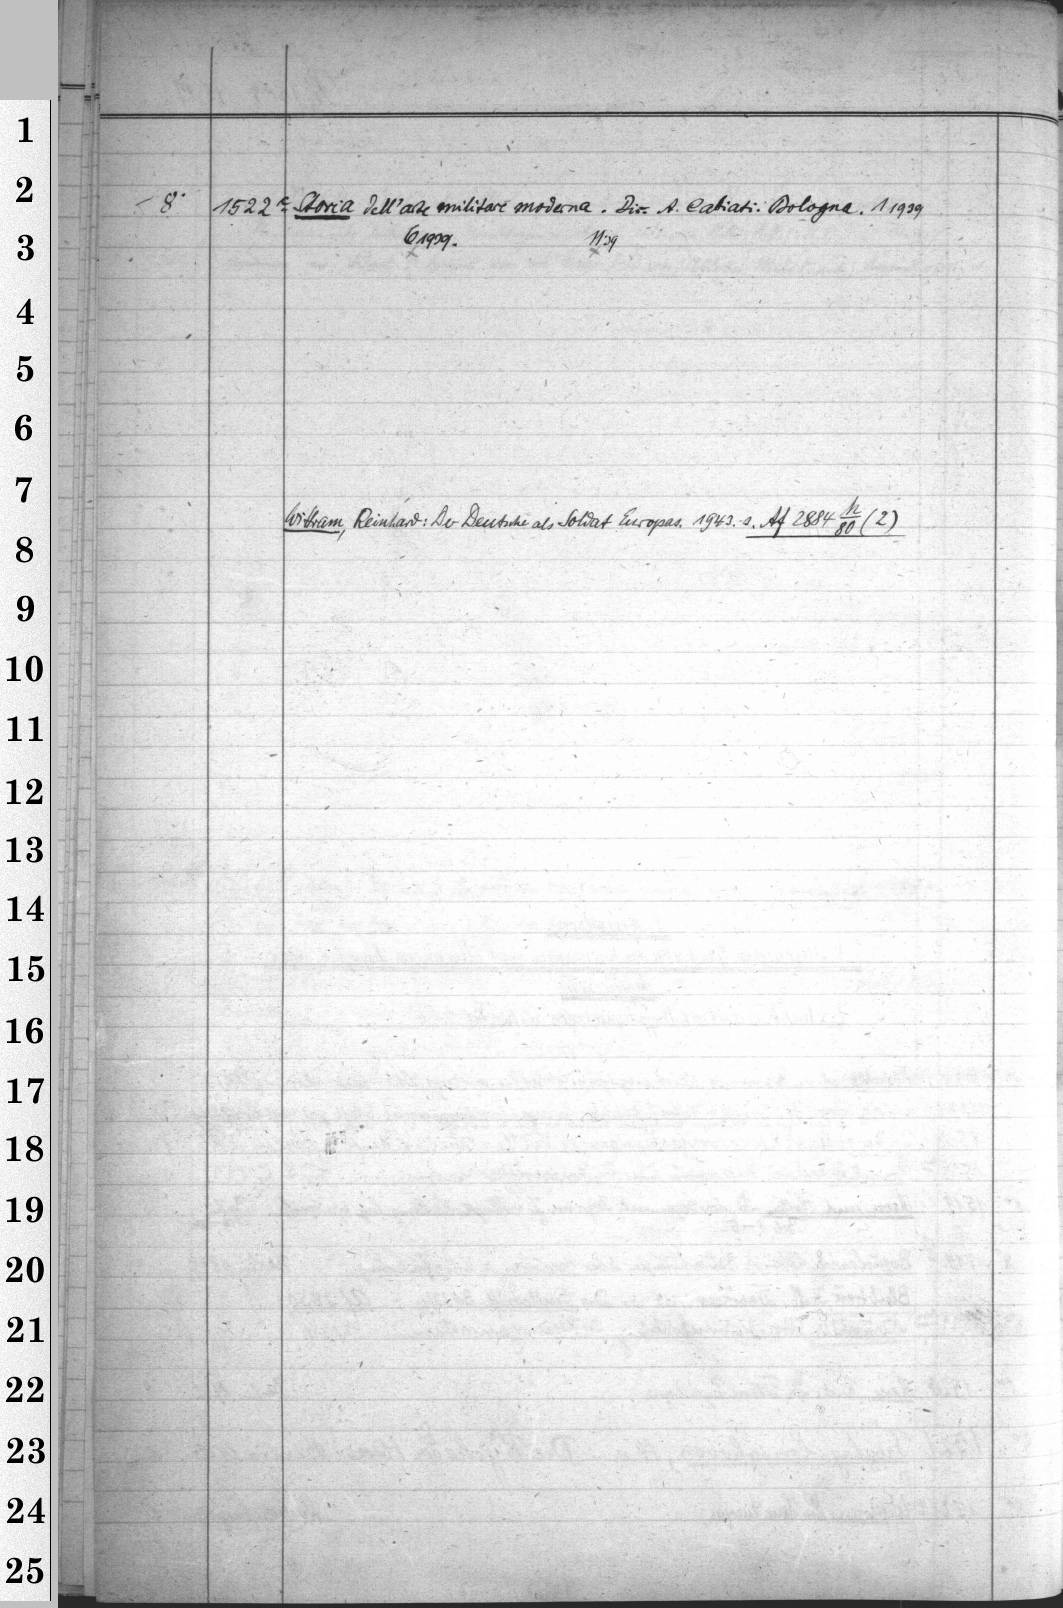 1
2
8° 1522 Storia dell'arte militare moderna. Dir. A. Cabiati. Bologna. 1 1939
3
6 1939. 11 39
4
5
6
7
Wittram, Reinhard: Der Deutsche als Soldat Europas. 1943. s. Af 2884 h/80 (2)
8
9
10
11
12
13
14
15
16
17
18
19
20
21
22
23
24
25